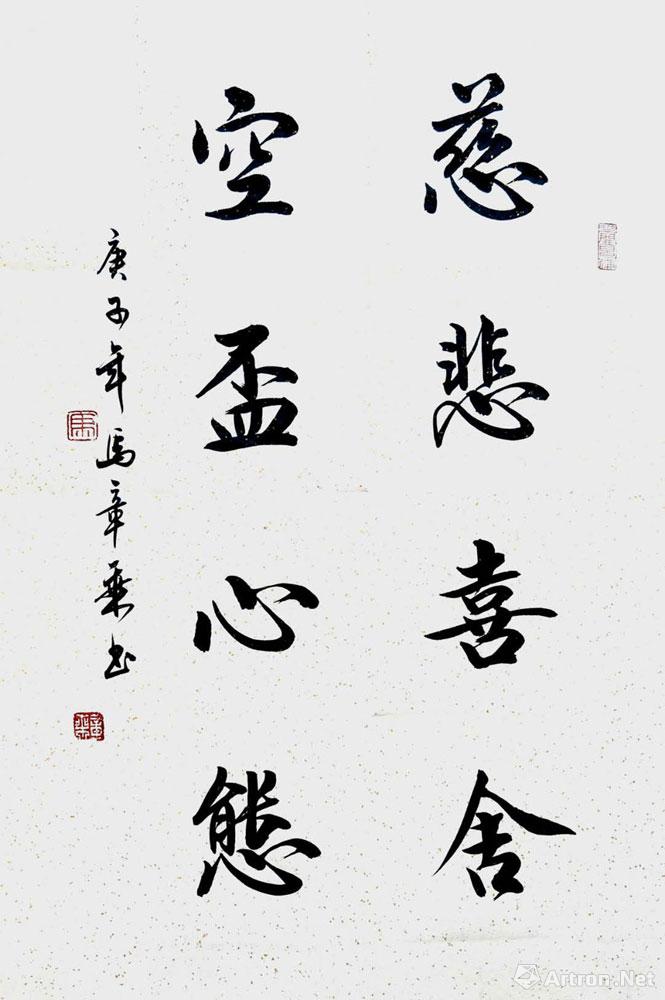 慈悲喜舍
空盃心態
庚子年馬章乗书
馬
Artron.Net